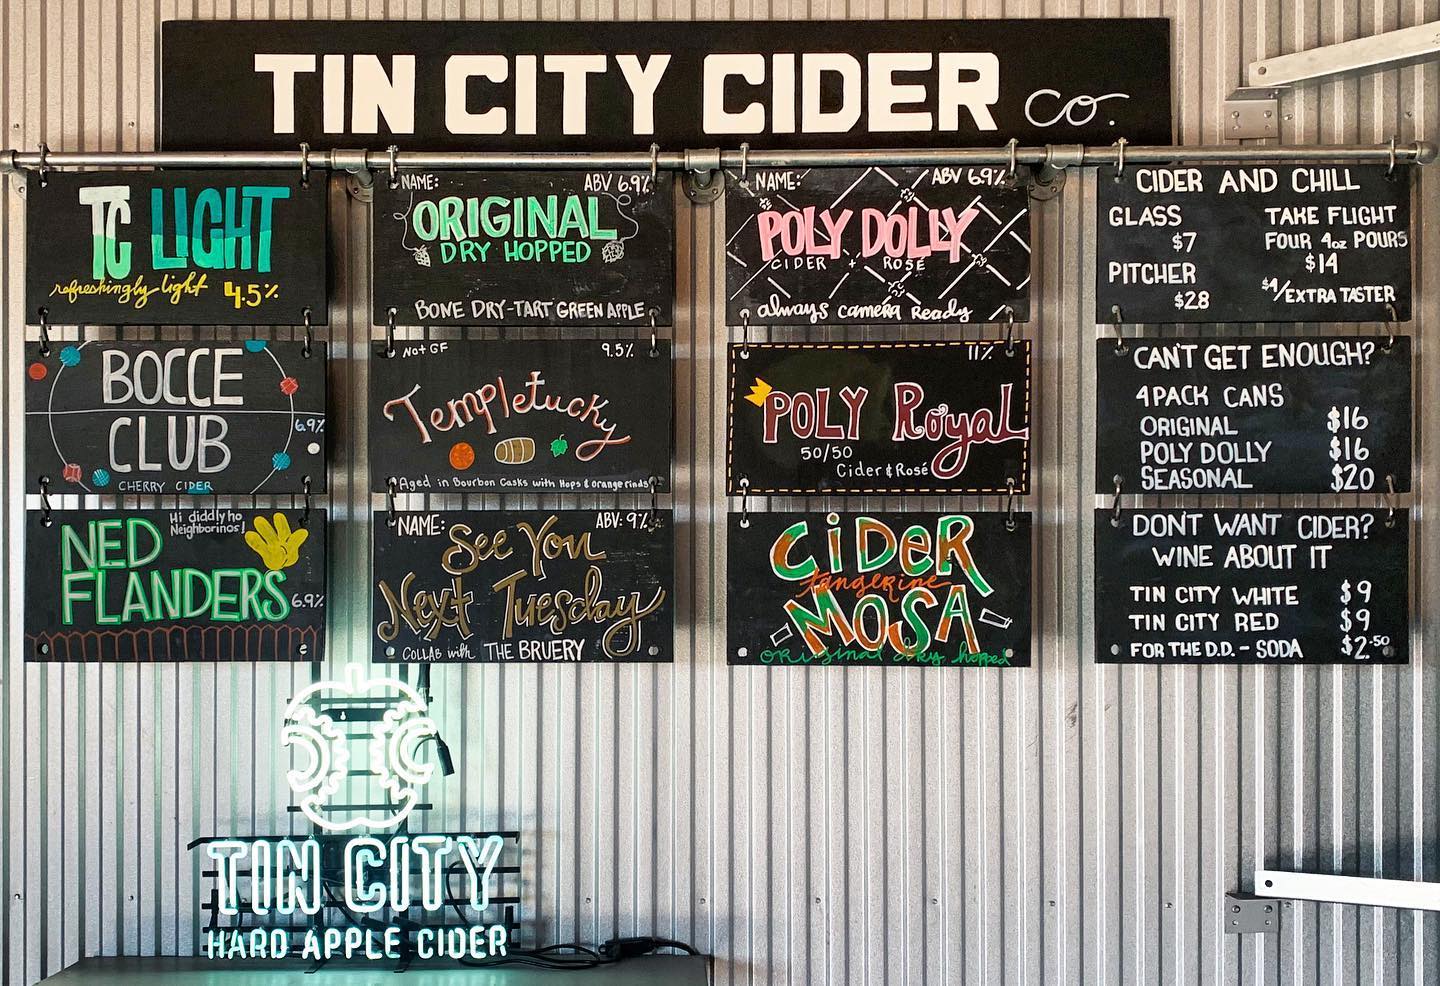 TIN CITY CIDER co.
TC LIGHT
refreshingly light 4.5%
BOCCE
CLUB
6.9%
CHERRY CIDER
Hi diddly ho
Neighborinos!
NED
FLANDERS
6.9%
NAME: ABV 6.9%
ORIGINAL
DRY HOPPED
BONE DRY-TART GREEN APPLE
Not GF 9.5%
Templetucky
Aged in Bourbon Casks with Hops & orange rinds
NAME: ABV: 9%
See You
Next Tuesday
COLLAB with THE BRUERY
NAME: ABV 6.9%
POLY DOLLY
CIDER + ROSÉ
always camera Ready
11%
POLY Royal
50/50
Cider & Rosé
CiDeR
tangerine
MOSA
original dry hopped
CIDER AND CHILL
GLASS
$7
PITCHER
$28
TAKE FLIGHT
FOUR 4oz POURS
$14
$4/EXTRA TASTER
CAN'T GET ENOUGH?
4 PACK CANS
ORIGINAL $16
POLY DOLLY $16
SEASONAL $20
DON'T WANT CIDER?
WINE ABOUT IT
TIN CITY WHITE $9
TIN CITY RED $9
FOR THE D.D. - SODA $2.50
TIN CITY
HARD APPLE CIDER